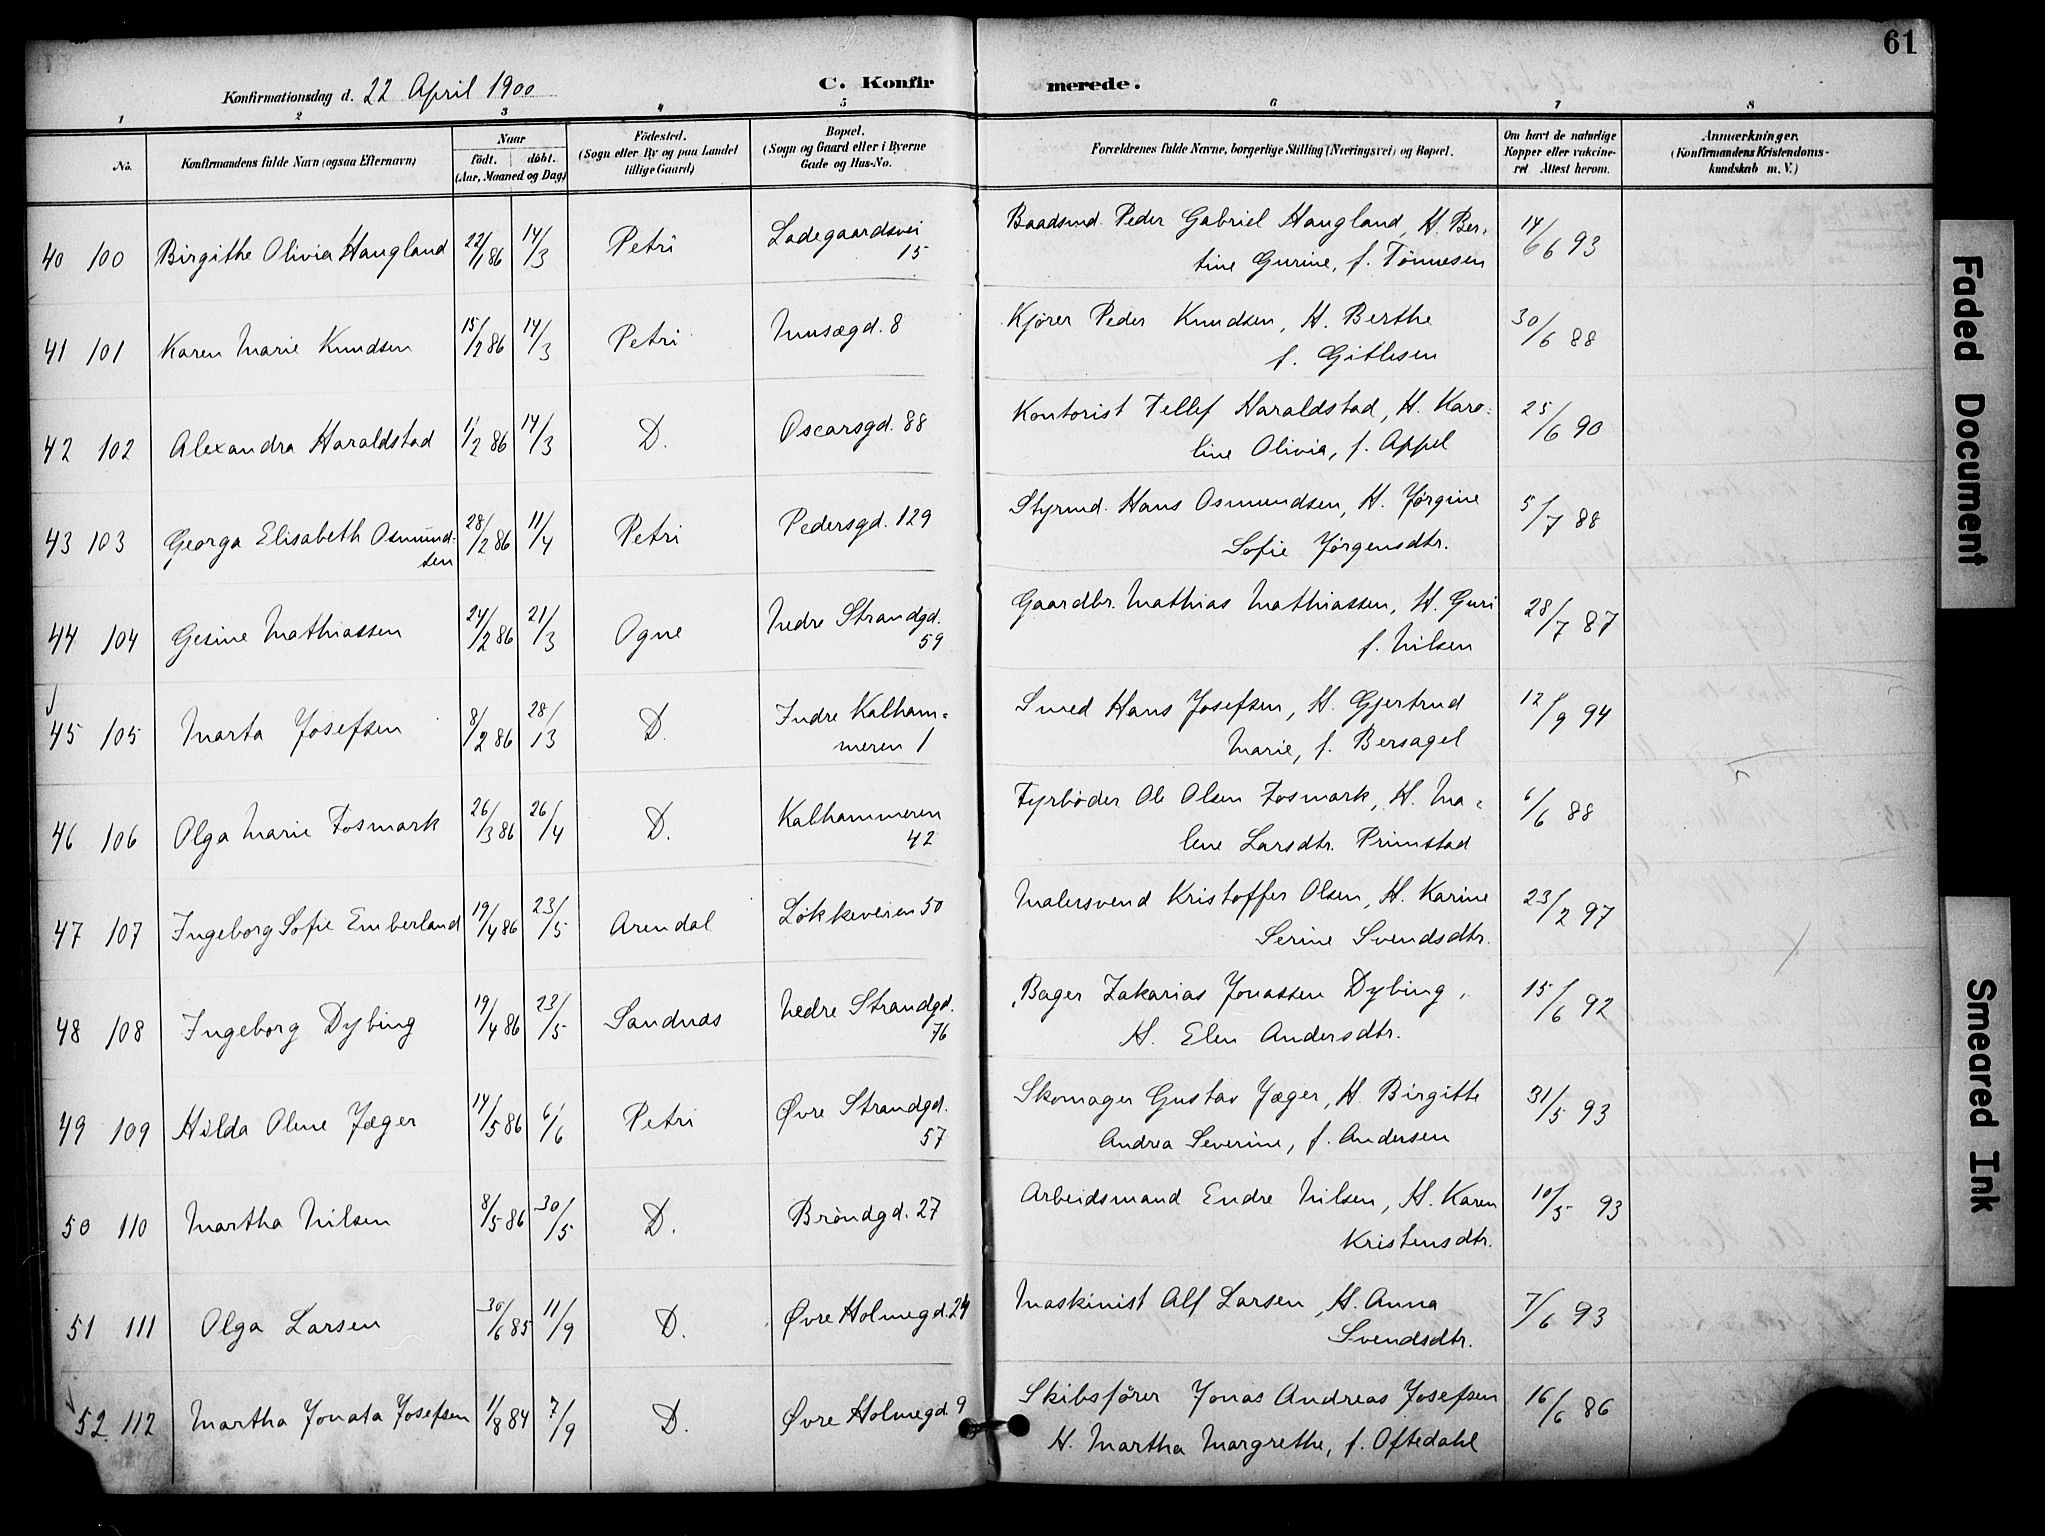 61
Konfirmationsdag d. 22 April 1900
C. Konfirmerede.
1 2 3 4 5 6 7 8
No.
Konfirmandens fulde Navn (ogsaa Efternavn)
Naar
födt. döbt.
(Aar, Maaned og Dag)
Födested.
(Sogn eller By og paa Landet
tillige Gaard)
Bopæl.
(Sogn og Gaard eller i Byerne
Gade og Hus-No.
Forældrenes fulde Navne, borgerlige Stilling (Næringsvei) og Bopæl.
Om havt de naturlige
Kopper eller vakcine-
ret Attest herom.
Anmærkninger.
(Konfirmandens Kristendoms-
kundskab m. V.)
40 100 Birgithe Olivia Haugland 22/1 86 14/3 Petri Ladegaardsvei
15
Baadsmd. Peder Gabriel Haugland, H. Ber-
tine Gurine, f. Tønnesen
14/6 93
41 101 Karen Marie Knudsen 15/2 86 14/3 Petri Musægd. 8
Kjører Peder Knudsen, H. Berthe
f. Gitlesen
30/6 88
42 102 Alexandra Haraldstad 11/2 86 14/3 D. Oscarsgd. 88
Kontorist Tellef Haraldstad, H. Karo-
line Olivia, f. Appel
25/6 90
43 103 Georga Elisabeth Osmund-
sen
28/2 86 11/4 Petri Pedersgd. 129
Styrmd. Hans Osmundsen, H. Jørgine
Sofie Jørgensdtr.
5/7 88
44 104 Gesine Mathiassen 24/2 86 21/3 Ogne Nedre Strandgd.
59
Gaardbr. Mathias Mathiassen, H. Guri
f. Nilsen
28/7 87
45 105 Marta Josefsen 8/2 86 28/3 D. Indre Kalham-
meren 1
Smed Hans Josefsen, H. Gjertrud
Marie, f. Bersagel
12/9 94
46 106 Olga Marie Fosmark 26/3 86 26/4 D. Kalhammeren
42
Fyrbøder Ole Olsen Fosmark, H. Ma-
lene Larsdtr. Primstad
6/6 88
47 107 Ingeborg Sofie Emberland 19/4 86 23/5 Arendal Løkkeveien 50
Malersvend Kristoffer Olsen, H. Karine
Serine Svendsdtr.
23/2 97
48 108 Ingeborg Dybing 19/4 86 23/5 Sandnæs Nedre Strandgd.
76
Bager Zakarias Jonassen Dybing,
H. Elen Andersdtr.
15/6 92
49 109 Hilda Oline Jæger 14/5 86 6/6 Petri Øvre Strandgd.
57
Skomager Gustav Jæger, H. Birgitte
Andrea Severine, f. Andersen
31/5 93
50 110 Martha Nilsen 8/5 86 30/5 D. Brøndgd. 27
Arbeidsmand Endre Nilsen, H. Karen
Kristensdtr.
10/5 93
51 111 Olga Larsen 30/6 85 11/9 D. Øvre Holmegd. 24
Maskinist Alf Larsen, H. Anna
Svendsdtr.
7/6 93
52 112 Martha Jonata Josefsen 1/8 84 7/9 D. Øvre Holmegd. 9
Skibsfører Jonas Andreas Josefsen
H. Martha Margrethe, f. Oftedahl
16/6 86
Faded Document
Smeared Ink